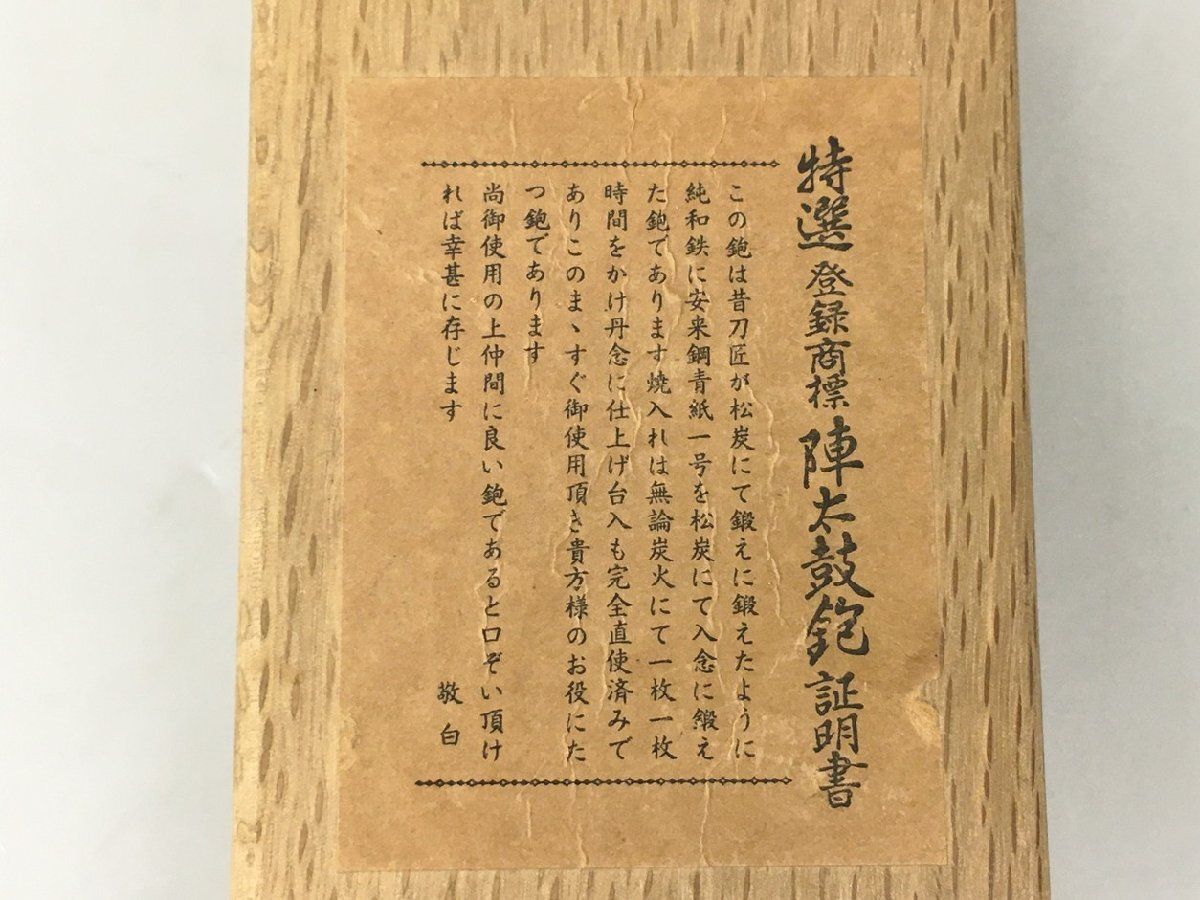 特選登録商標陣太鼓鉋証明書
この鉋は昔刀匠が松炭にて鍛えに鍛えたように
純和鉄に安来鋼青紙一号を松炭にて入念に鍛え
た鉋であります焼入れは無論炭火にて一枚一枚
時間をかけ丹念に仕上げ台入も完全直使済みで
ありこのまゝすぐ御使用頂き貴方様のお役にた
つ鉋であります
尚御使用の上仲間に良い鉋であると口ぞい頂け
れば幸甚に存じます
敬白